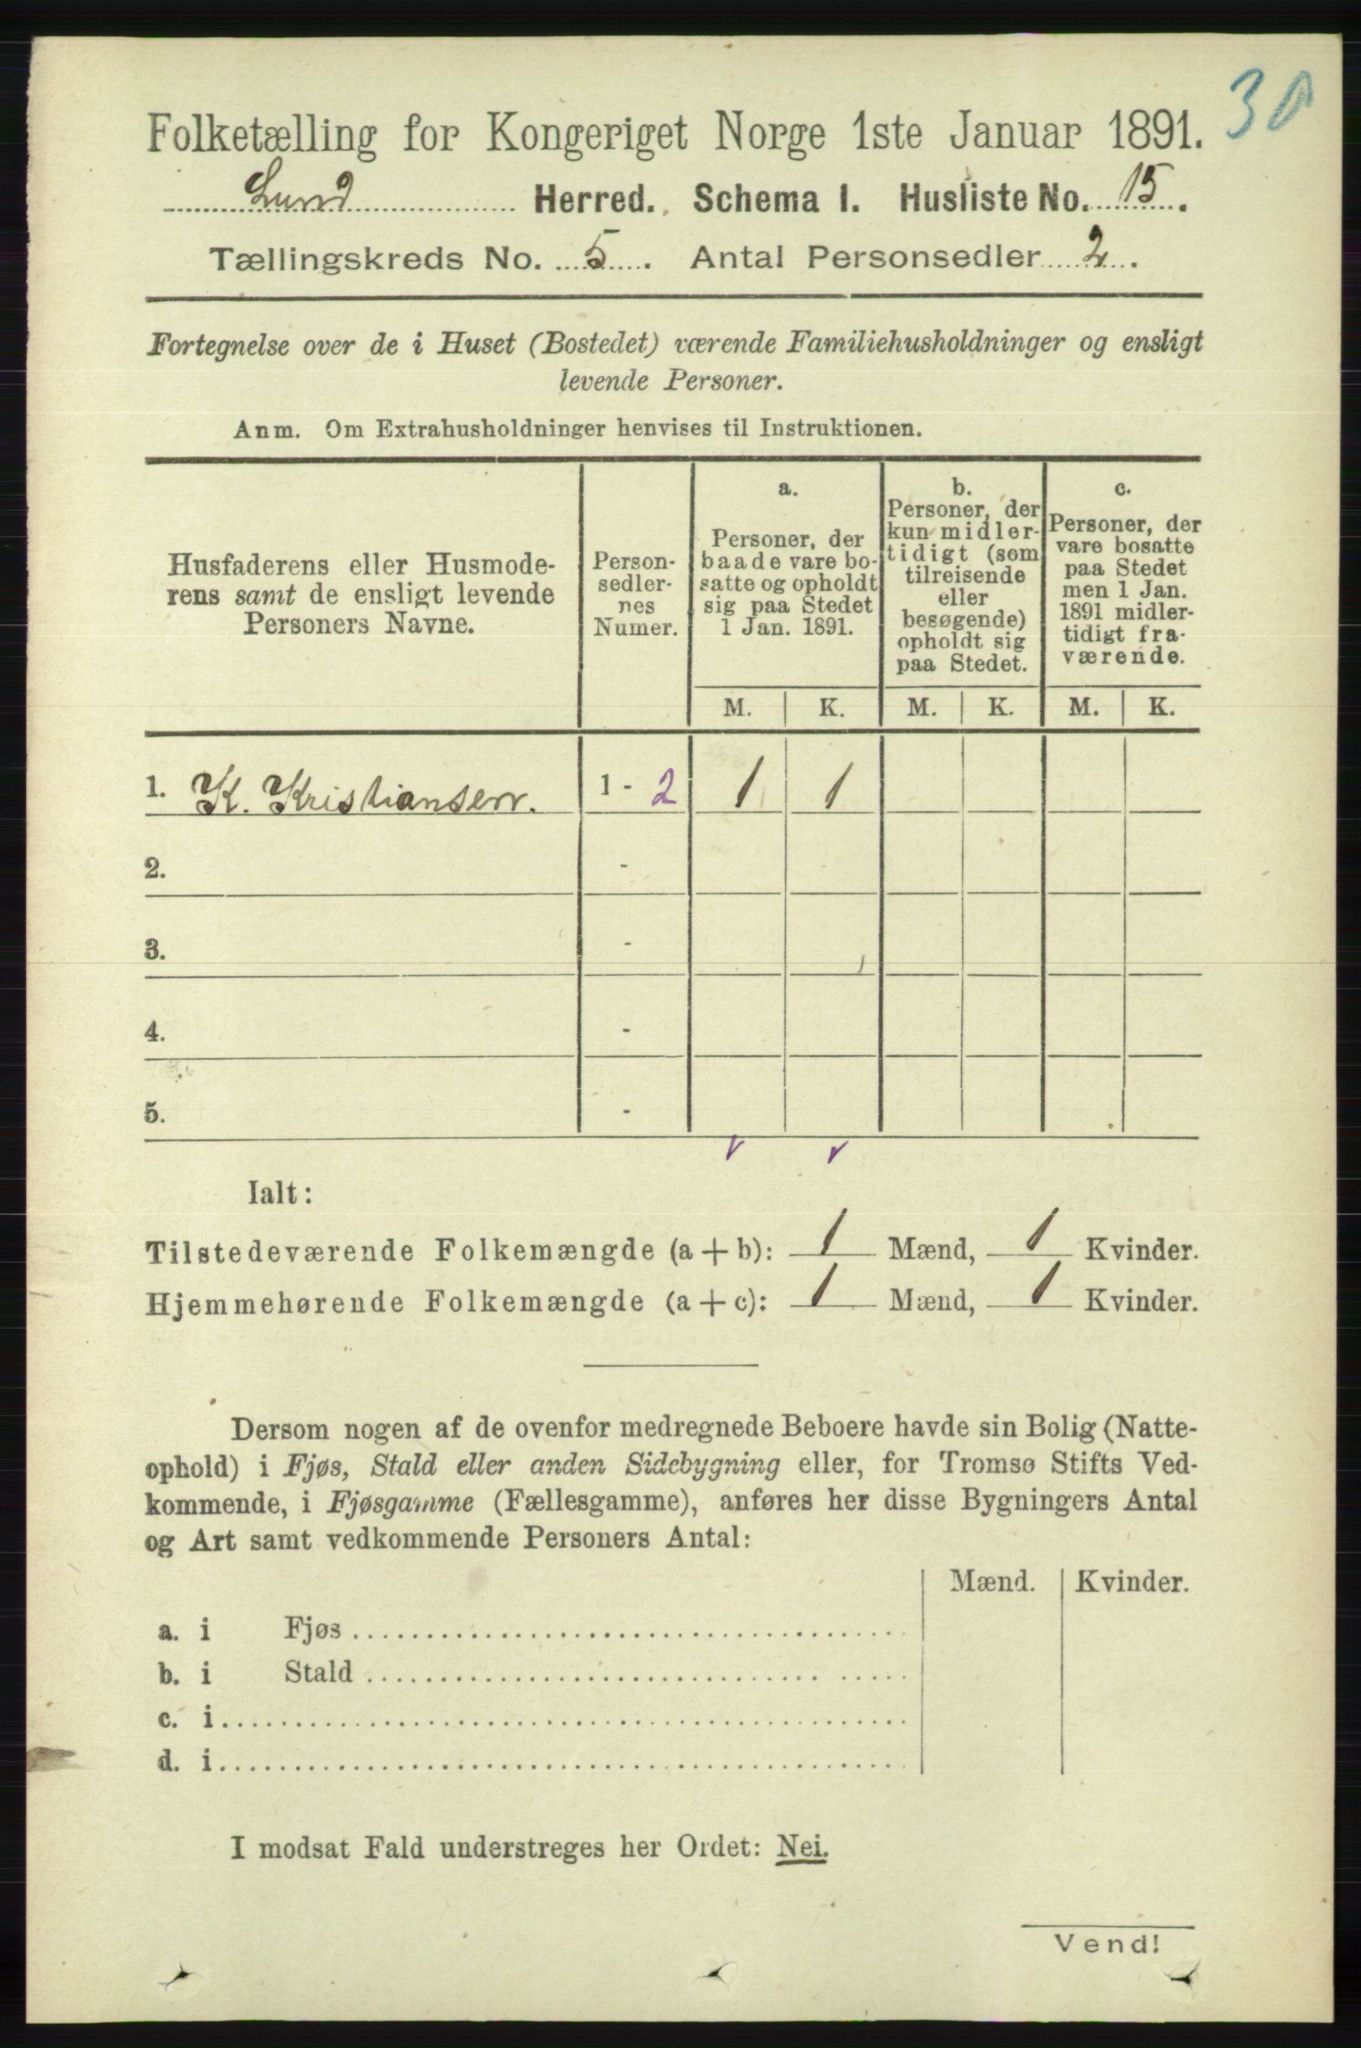 30
Folketælling for Kongeriget Norge 1ste Januar 1891.
Lund Herred. Schema I. Husliste No. 15.
Tællingskreds No. 5. Antal Personsedler 2.
Fortegnelse over de i Huset (Bostedet) værende Familiehusholdninger og ensligt
levende Personer.
Anm. Om Extrahusholdninger henvises til Instruktionen.
Husfaderens eller Husmode-
rens samt de ensligt levende
Personers Navne.
Person-
sedler-
nes
Numer.
a.
Personer, der
baade vare bo-
satte og opholdt
sig paa Stedet
1 Jan. 1891.
b.
Personer, der
kun midler-
tidigt (som
tilreisende
eller
besøgende)
opholdt sig
paa Stedet.
c.
Personer, der
vare bosatte
paa Stedet
men 1 Jan.
1891 midler-
tidigt fra-
værende.
M. K. M. K. M. K.
1. K. Kristiansen. 1 - 2 1 1
2. -
3. -
4. -
5. -
Ialt:
Tilstedeværende Folkemængde (a + b): 1 Mænd, 1 Kvinder.
Hjemmehørende Folkemængde (a + c): 1 Mænd, 1 Kvinder.
Dersom nogen af de ovenfor medregnede Beboere havde sin Bolig (Natte-
ophold) i Fjøs, Stald eller anden Sidebygning eller, for Tromsø Stifts Ved-
kommende, i Fjøsgamme (Fællesgamme), anføres her disse Bygningers Antal
og Art samt vedkommende Personers Antal:
Mænd. Kvinder.
a. i Fjøs
b. i Stald
c. i
d. i
I modsat Fald understreges her Ordet: Nei.
Vend!